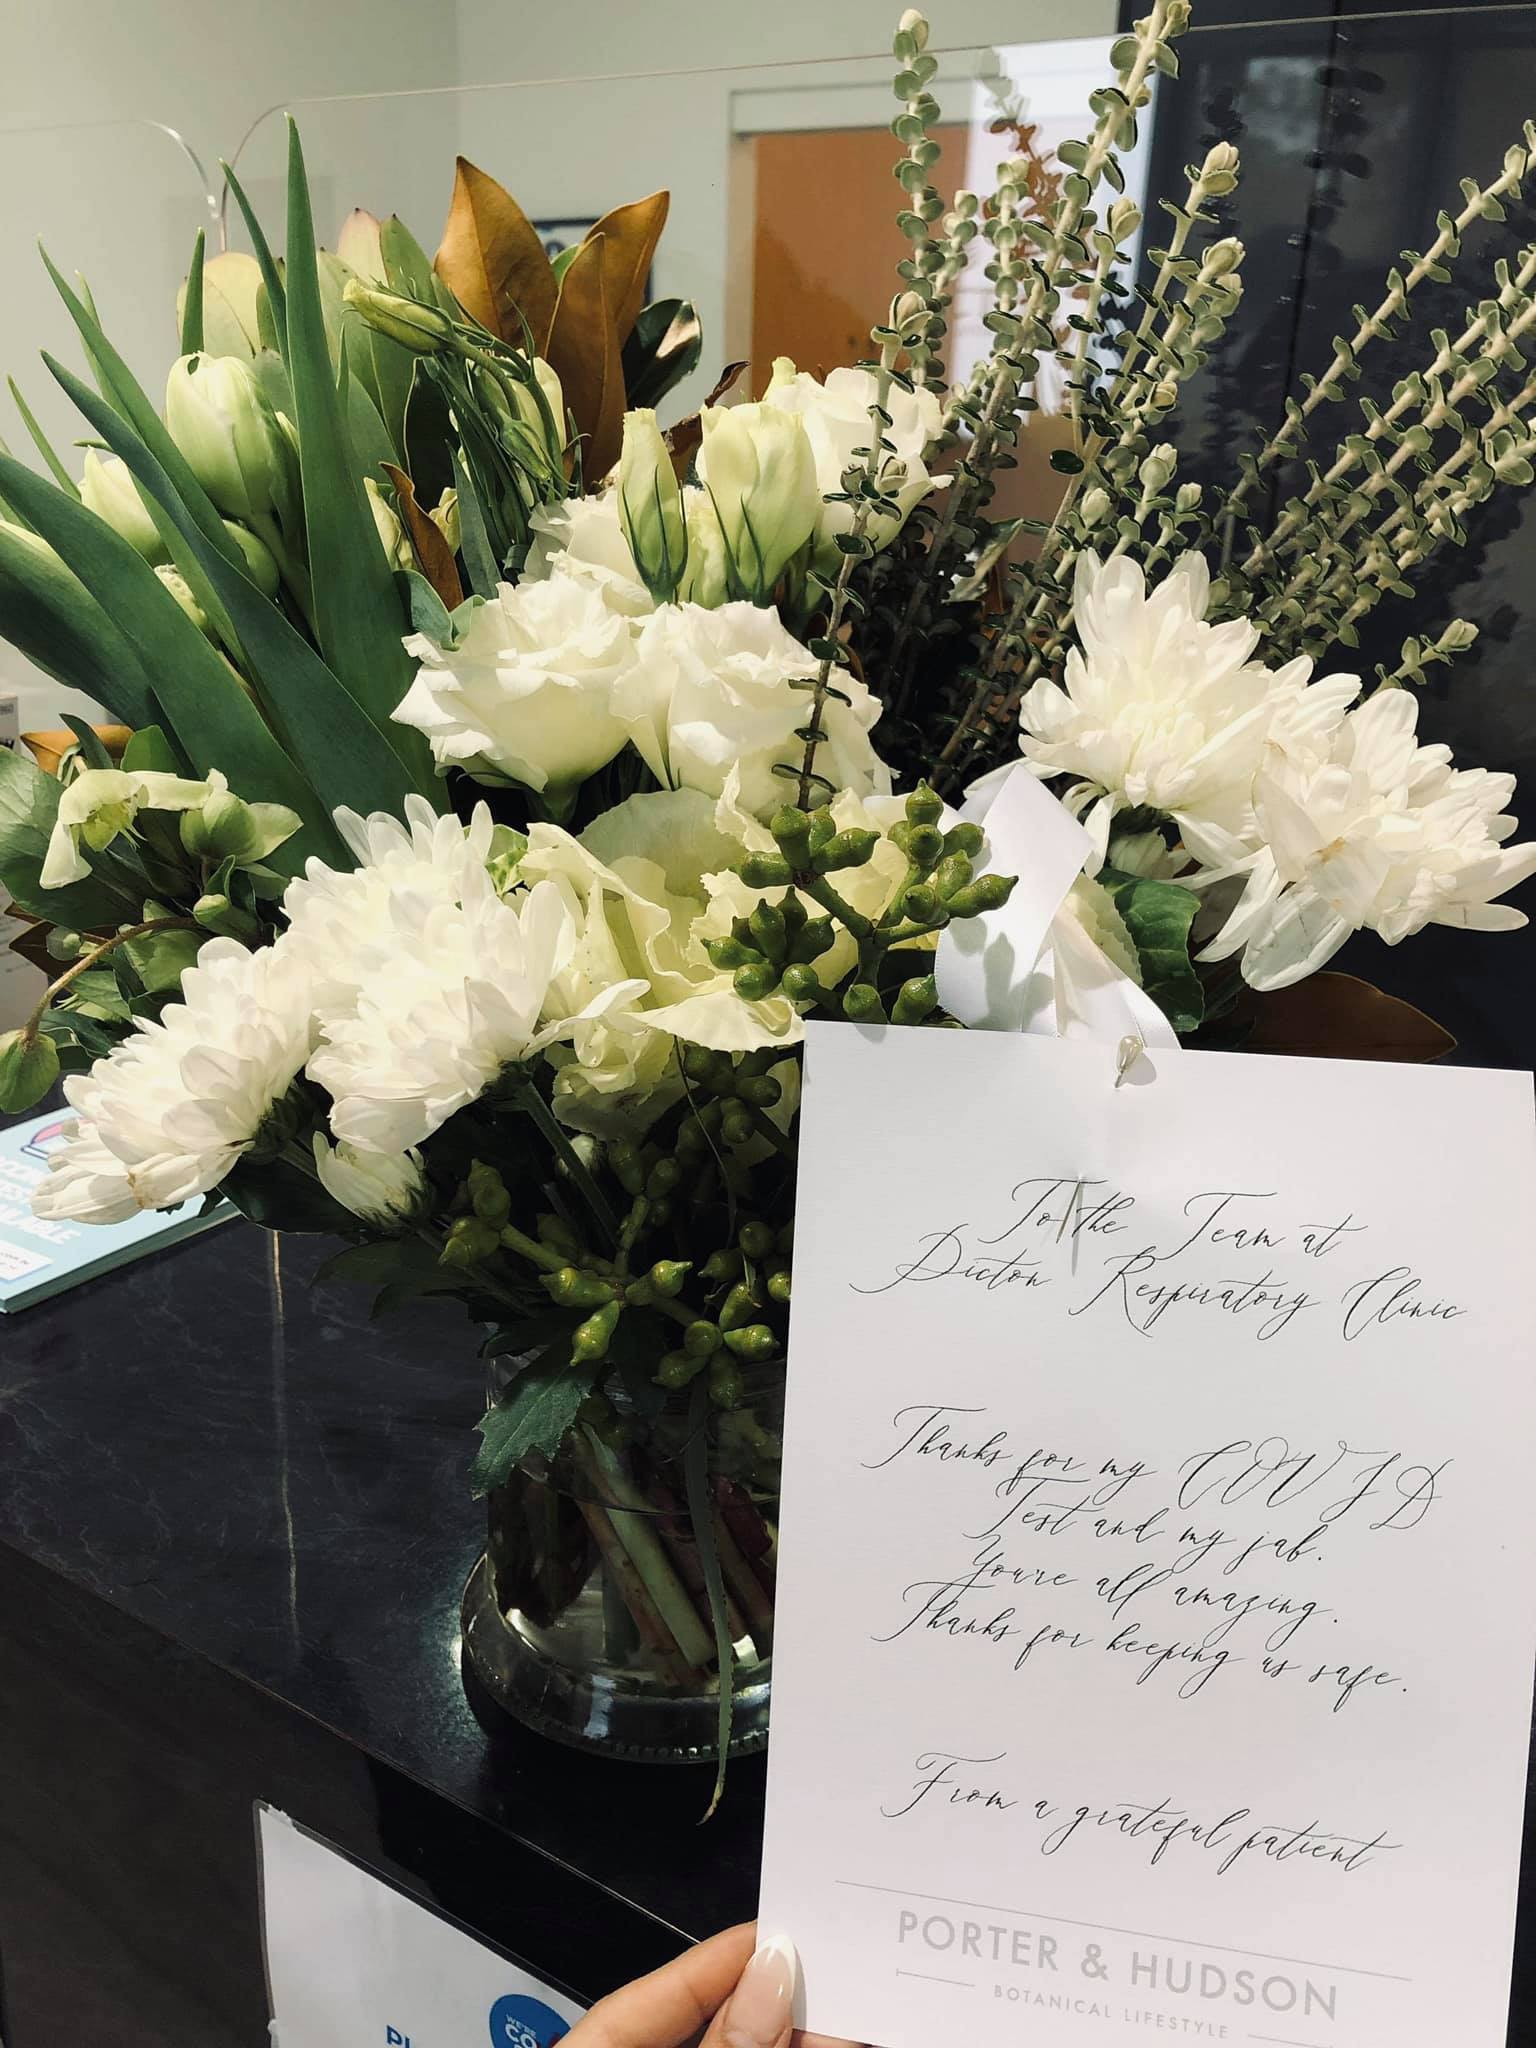 To the Team at
Dicton Respiratory Clinic
Thanks for my COVID
Test and my jab.
You're all amazing.
Thanks for keeping us safe.
From a grateful patient
PORTER & HUDSON
BOTANICAL LIFESTYLE
WE'RE
CO